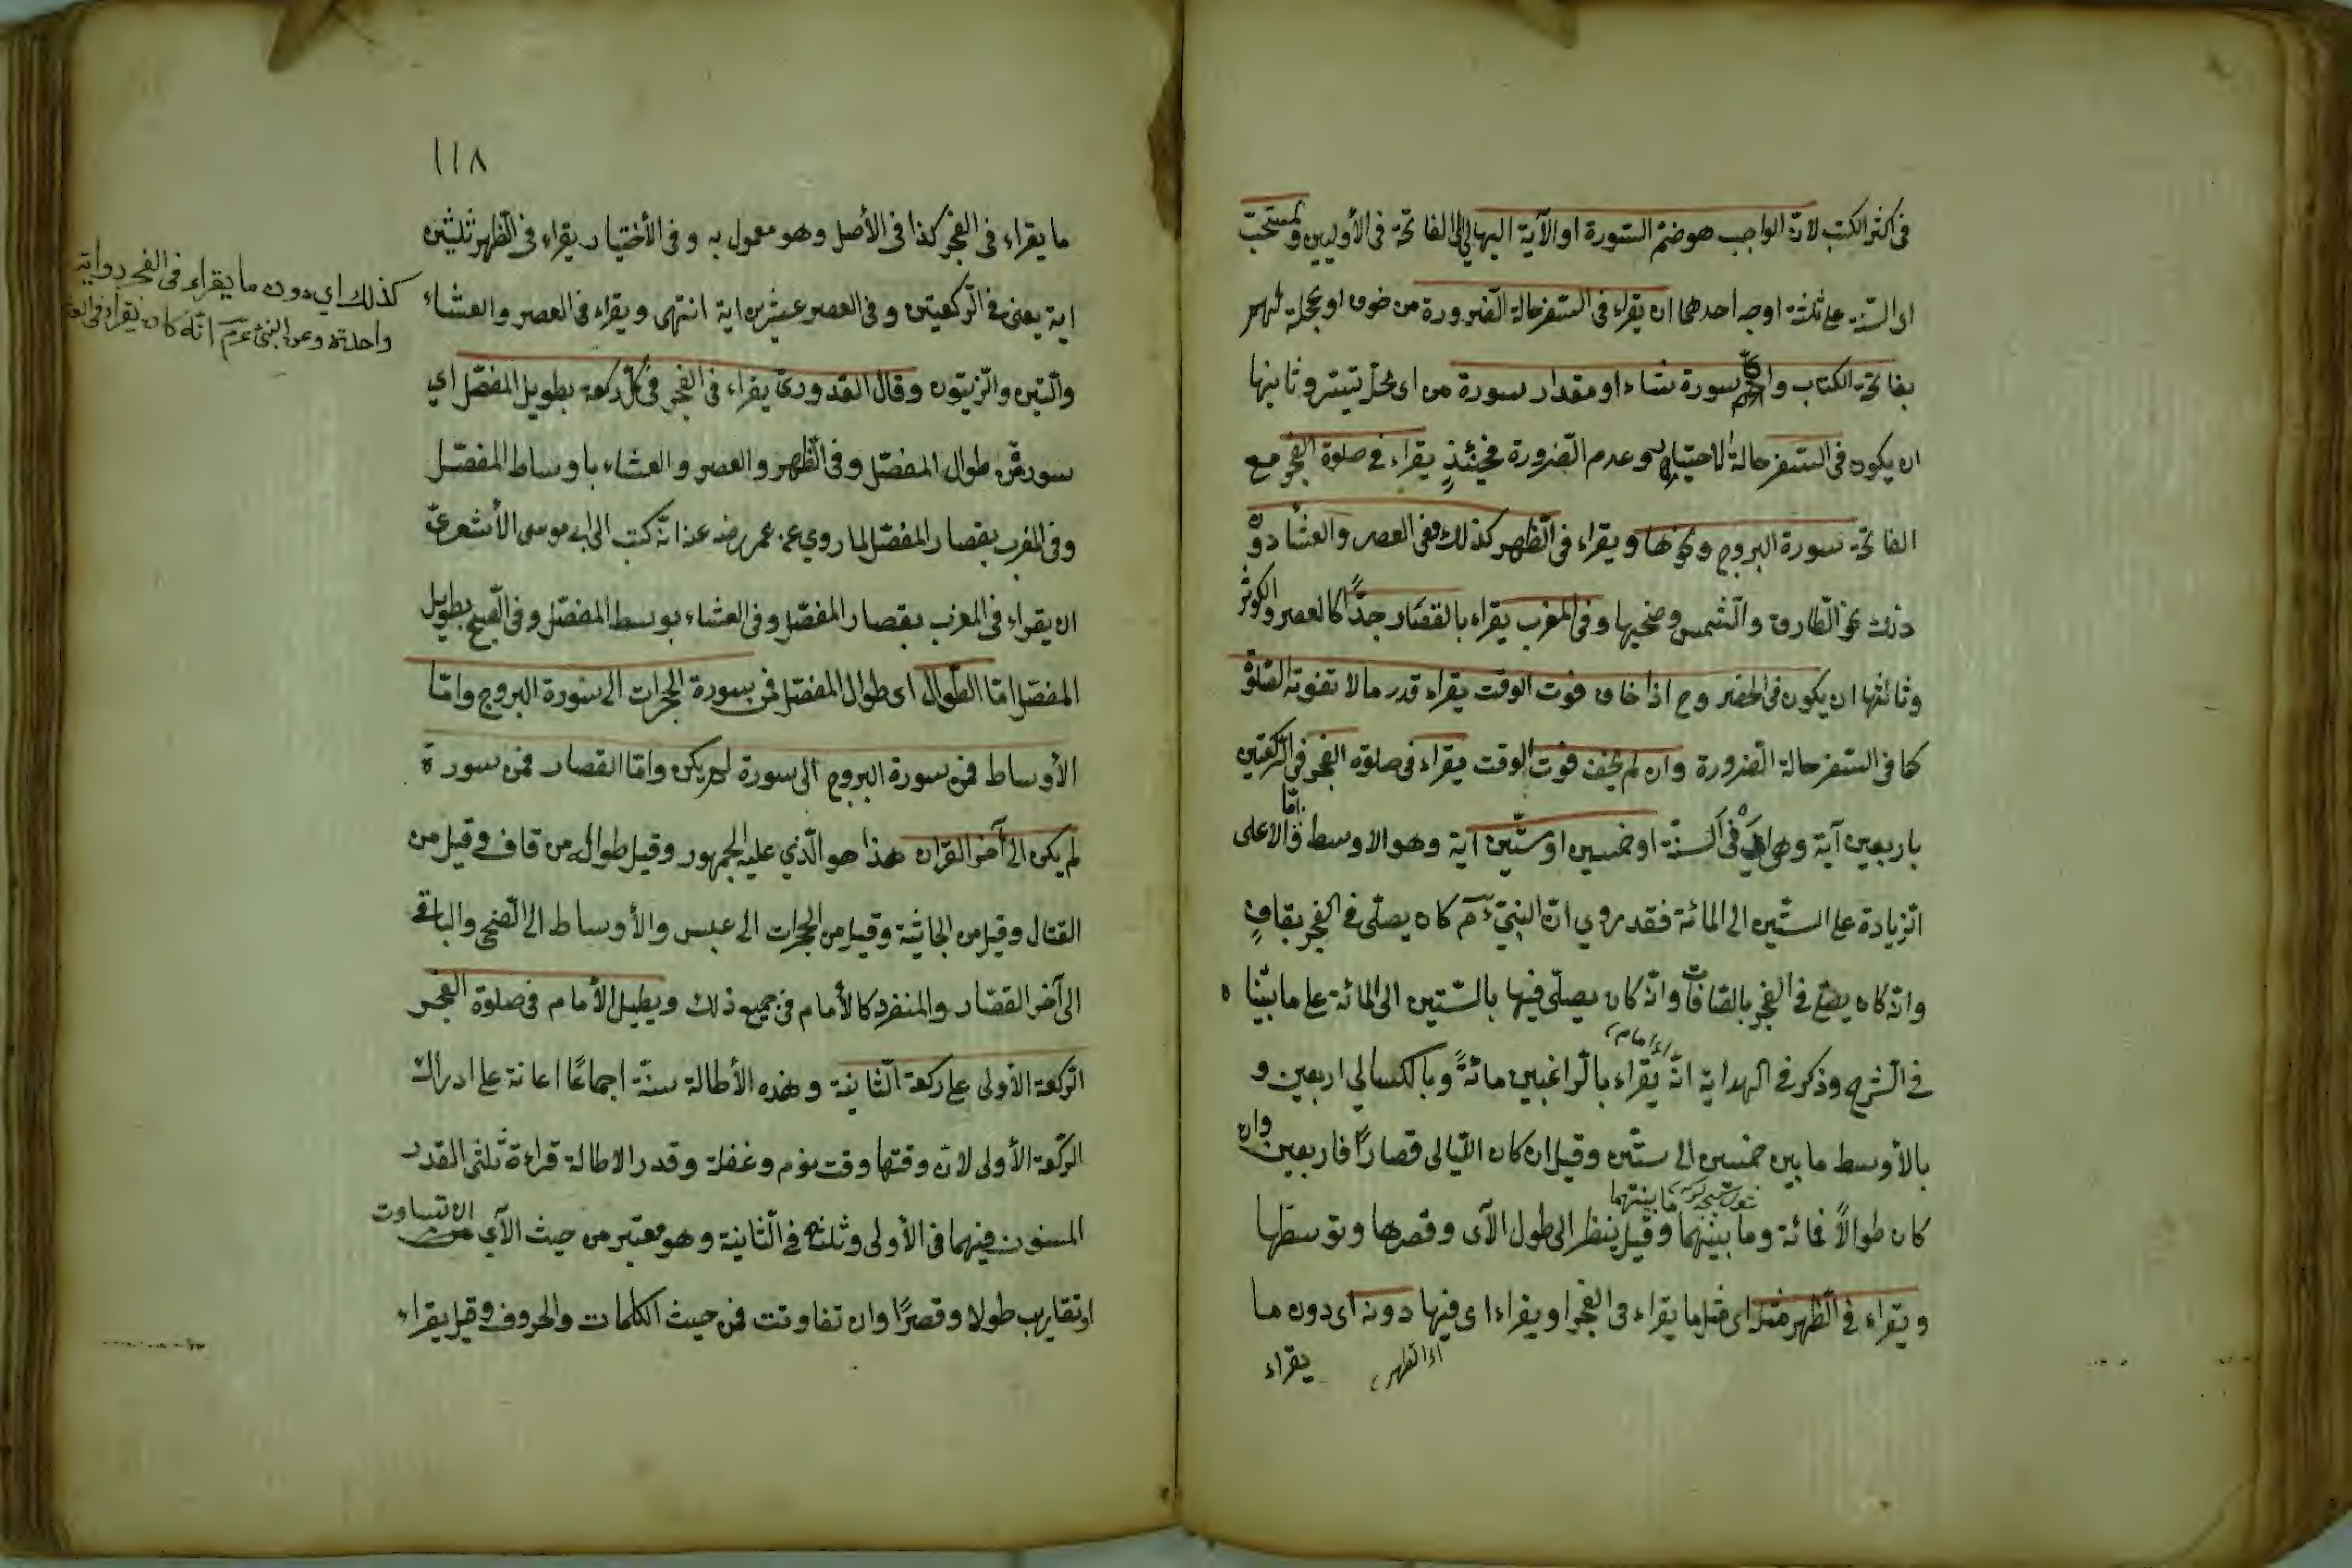 فى اكثر الكتب لان الواجب هو ضم السورة او الآية اليها الى الفاتحة فى الأوليين والمستحب
اى السنة على ثلثة اوجه احدها ان يقراء فى السفر حالة الضرورة من خوف او عجلة
بفاتحة الكتاب واى سورة شاء او مقدار سورة من اى محل تيسر وثانيها
ان يكون فى السفر حالة الاختيار وهو عدم الضرورة فحينئذٍ يقراء فى صلوة الفجر مع
الفاتحة سورة البروج ونحوها ويقراء فى الظهر كذلك وفى العصر والعشاء دون
ذلك نحو الطارق والشمس وضحيها وفى المغرب يقراء بالقصار جدًّا كالعصر والكوثر
وثالثها ان يكون فى الحضر وح اذا خاف فوت الوقت يقراء قدر ما لا تفوته الصلوة
كما فى السفر حالة الضرورة وان لم يخف فوت الوقت يقراء فى صلوة الفجر فى الركعتين
باربعين آية وهى فى السنة او خمسين او ستين آية وهو الاوسط امّا الاعلى
الزيادة على الستين الى المائة فقد روي ان النبىّ عم كان يصلى فى الفجر بقافٍ
وانه كان يصلى فى الفجر بالصافات وانه كان يصلى فيها بالستين الى المائة على ما بيّنا
فى الشرح وذكر فى الهداية انه يقراء بالراغبين مائةً وبالكسالى اربعين و
اى امام
بالأوسط ما بين خمسين الى ستين وقيل ان كان الليالى قصارًا فاربعين وان
كان طوالاً فمائة وما بينهما وقيل ينظر الى طول الآى وقصرها وتوسطها
ما بينهما
ويقراء فى الظهر مثل اى مثل ما يقراء فى الفجر او يقراء اى فيها دونه اى دون ما
اى الظهر
يقراء
١١٨
ما يقراء فى الفجر كذا فى الأصل وهو معمول به وفى الأختيار يقراء فى الظهر ثلثين
اية يعنى فى الركعتين وفى العصر عشرين اية انتهى ويقراء فى العصر والعشاء
كذلك اي دون ما يقراء فى الفجر رواية
واحدة وعن النبىّ عم انّه كان يقراء فى
والتين والزيتون وقال القدورىّ يقراء فى الفجر فى كل ركعة بطويل المفصل اي
سورة من طوال المفصل وفى الظهر والعصر والعشاء باوساط المفصل
وفى المغرب بقصار المفصل لما روي عن عمر رضه عنه انّه كتب الى ابى موسى الأشعرىّ
ان يقراء فى المغرب بقصار المفصل وفى العشاء بوسط المفصل وفى الصبح بطويل
المفصل امّا الطوال اى طوال المفصل فمن سورة الحجرات الى سورة البروج وامّا
الأوساط فمن سورة البروج الى سورة لم يكن وامّا القصار فمن سورة
لم يكن الى آخر القرآن هذا هو الّذي عليه الجمهور وقيل طواله من قاف وقيل من
القتال وقيل من الجاثية وقيل من الحجرات الى عبس والأوساط الى الضحى والباقى
الى آخر القصار والمنفرد كالأمام فى جميع ذلك ويطيل الأمام فى صلوة الفجر
الركعة الأولى على ركعة الثانية وهذه الأطالة سنّة اجماعًا اعانة على ادراك
الركعة الأولى لان وقتها وقت نوم وغفلة وقدر الاطالة قراءة ثلثى القدر
المسنون فيهما فى الأولى وثلثه فى الثانية وهو معتبر من حيث الآي ان تساوت
او تقاربت طولا وقصرًا وان تفاوتت فمن حيث الكلمات والحروف وقيل يقراء